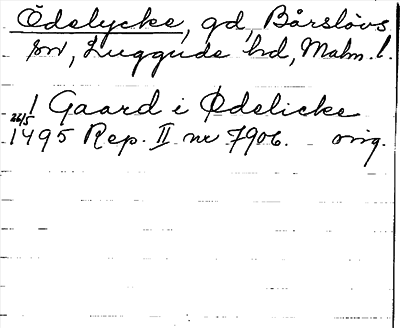 Ödelycke, gd, Bårslövs
sn, Luggude hd, Malm. l.
1 Gaard i Ødelicke
26/5
1495 Rep. II nr 7906. orig.